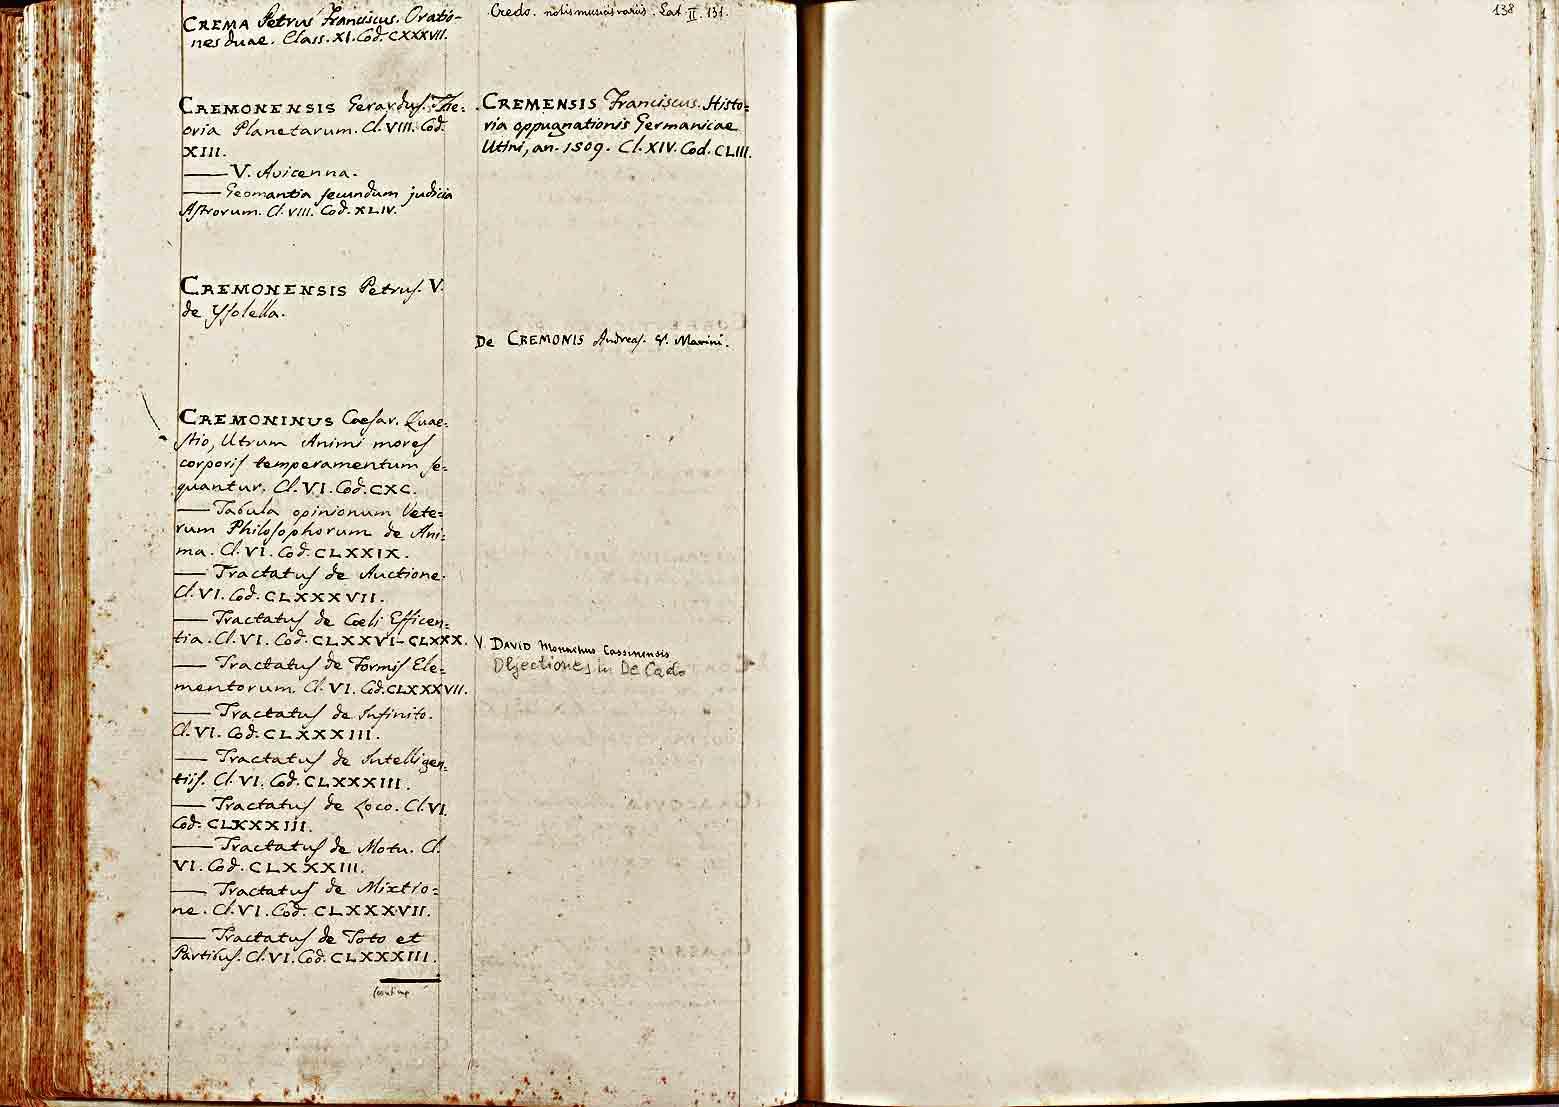 CREMA Petrus Franciscus. Oratio-
nes duae. Class. XI. Cod. CXXXVII.
CREMONENSIS Gerardus. The=
oria Planetarum. Cl. VIII. Cod.
XIII.
—— V. Avicenna.
—— Geomantia secundum judicia
Astrorum. Cl. VIII. Cod. XLIV.
CREMONENSIS Petrus. V.
de Ysolella.
CREMONINUS Caesar. Quae=
stio, Utrum Animi mores
corporis temperamentum se=
quantur. Cl. VI. Cod. CXC.
—— Tabula opinionum Vete=
rum Philosophorum de Ani=
ma. Cl. VI. Cod. CLXXIX.
—— Tractatus de Auctione.
Cl. VI. Cod. CLXXXVII.
—— Tractatus de Coeli Efficen=
tia. Cl. VI. Cod. CLXXVI-CLXXX.
—— Tractatus de Formis Ele=
mentorum. Cl. VI. Cod. CLXXXVII.
—— Tractatus de Infinito.
Cl. VI. Cod. CLXXXIII.
—— Tractatus de Intelligen=
tiis. Cl. VI. Cod. CLXXXIII.
—— Tractatus de Loco. Cl. VI.
Cod. CLXXXIII.
—— Tractatus de Motu. Cl.
VI. Cod. CLXXXIII.
—— Tractatus de Mixtio=
ne. Cl. VI. Cod. CLXXXVII.
—— Tractatus de Toto et
Partibus. Cl. VI. Cod. CLXXXIII.
Credo. notis musicis variis. Lat. II. 131.
CREMENSIS Franciscus. Histo=
ria oppugnationis Germanicae
Utini, an. 1509. Cl. XIV. Cod. CLIII.
De CREMONIS Andreas. V. Marini.
V. DAVID Monachus Cassinensis
Objectiones in De Caelo
138